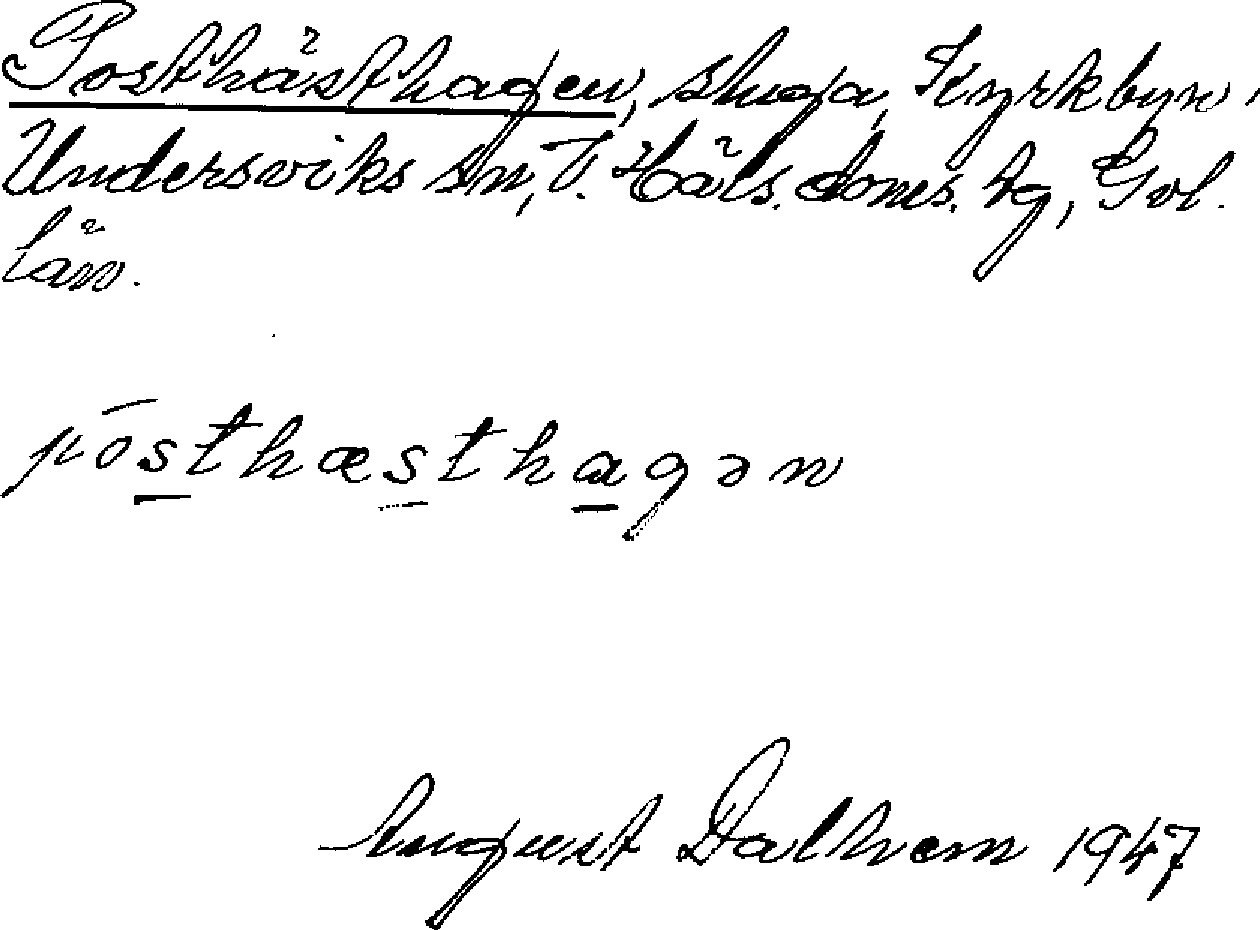 Posthästhagen, stuga, Kyrkbyn,
Undersviks sn, V. Häls. doms. tg, Gvl.
län.
pósthæsthagən
August Dalhem 1947